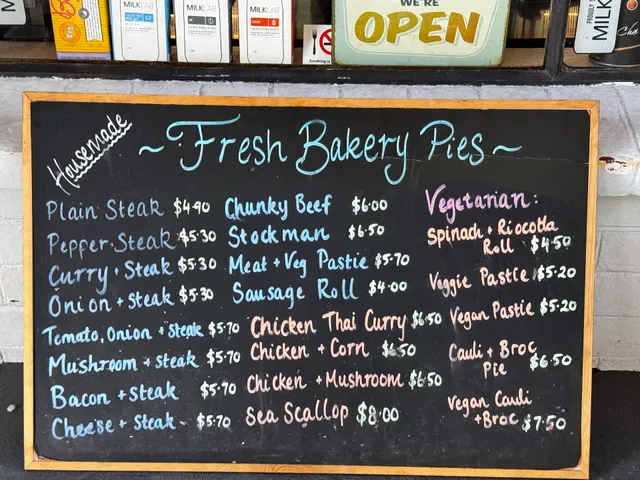 MILKLAB
MILKLAB
MILKLAB
WE'RE
OPEN
PROUDLY
MILK
Housemade
~ Fresh Bakery Pies ~
Plain Steak $4.90
Pepper Steak $5.30
Curry + Steak $5.30
Onion + Steak $5.30
Tomato, Onion + Steak $5.70
Mushroom + steak $5.70
Bacon + steak $5.70
Cheese + Steak $5.70
Chunky Beef $6.00
Stockman $6.50
Meat + Veg Pastie $5.70
Sausage Roll $4.00
Chicken Thai Curry $6.50
Chicken + Corn $6.50
Chicken + Mushroom $6.50
Sea Scallop $8.00
Vegetarian:
Spinach + Riocotta
Roll $4.50
Veggie Pastie $5.20
Vegan Pastie $5.20
Cauli + Broc
Pie $6.50
Vegan Cauli
+ Broc $7.50